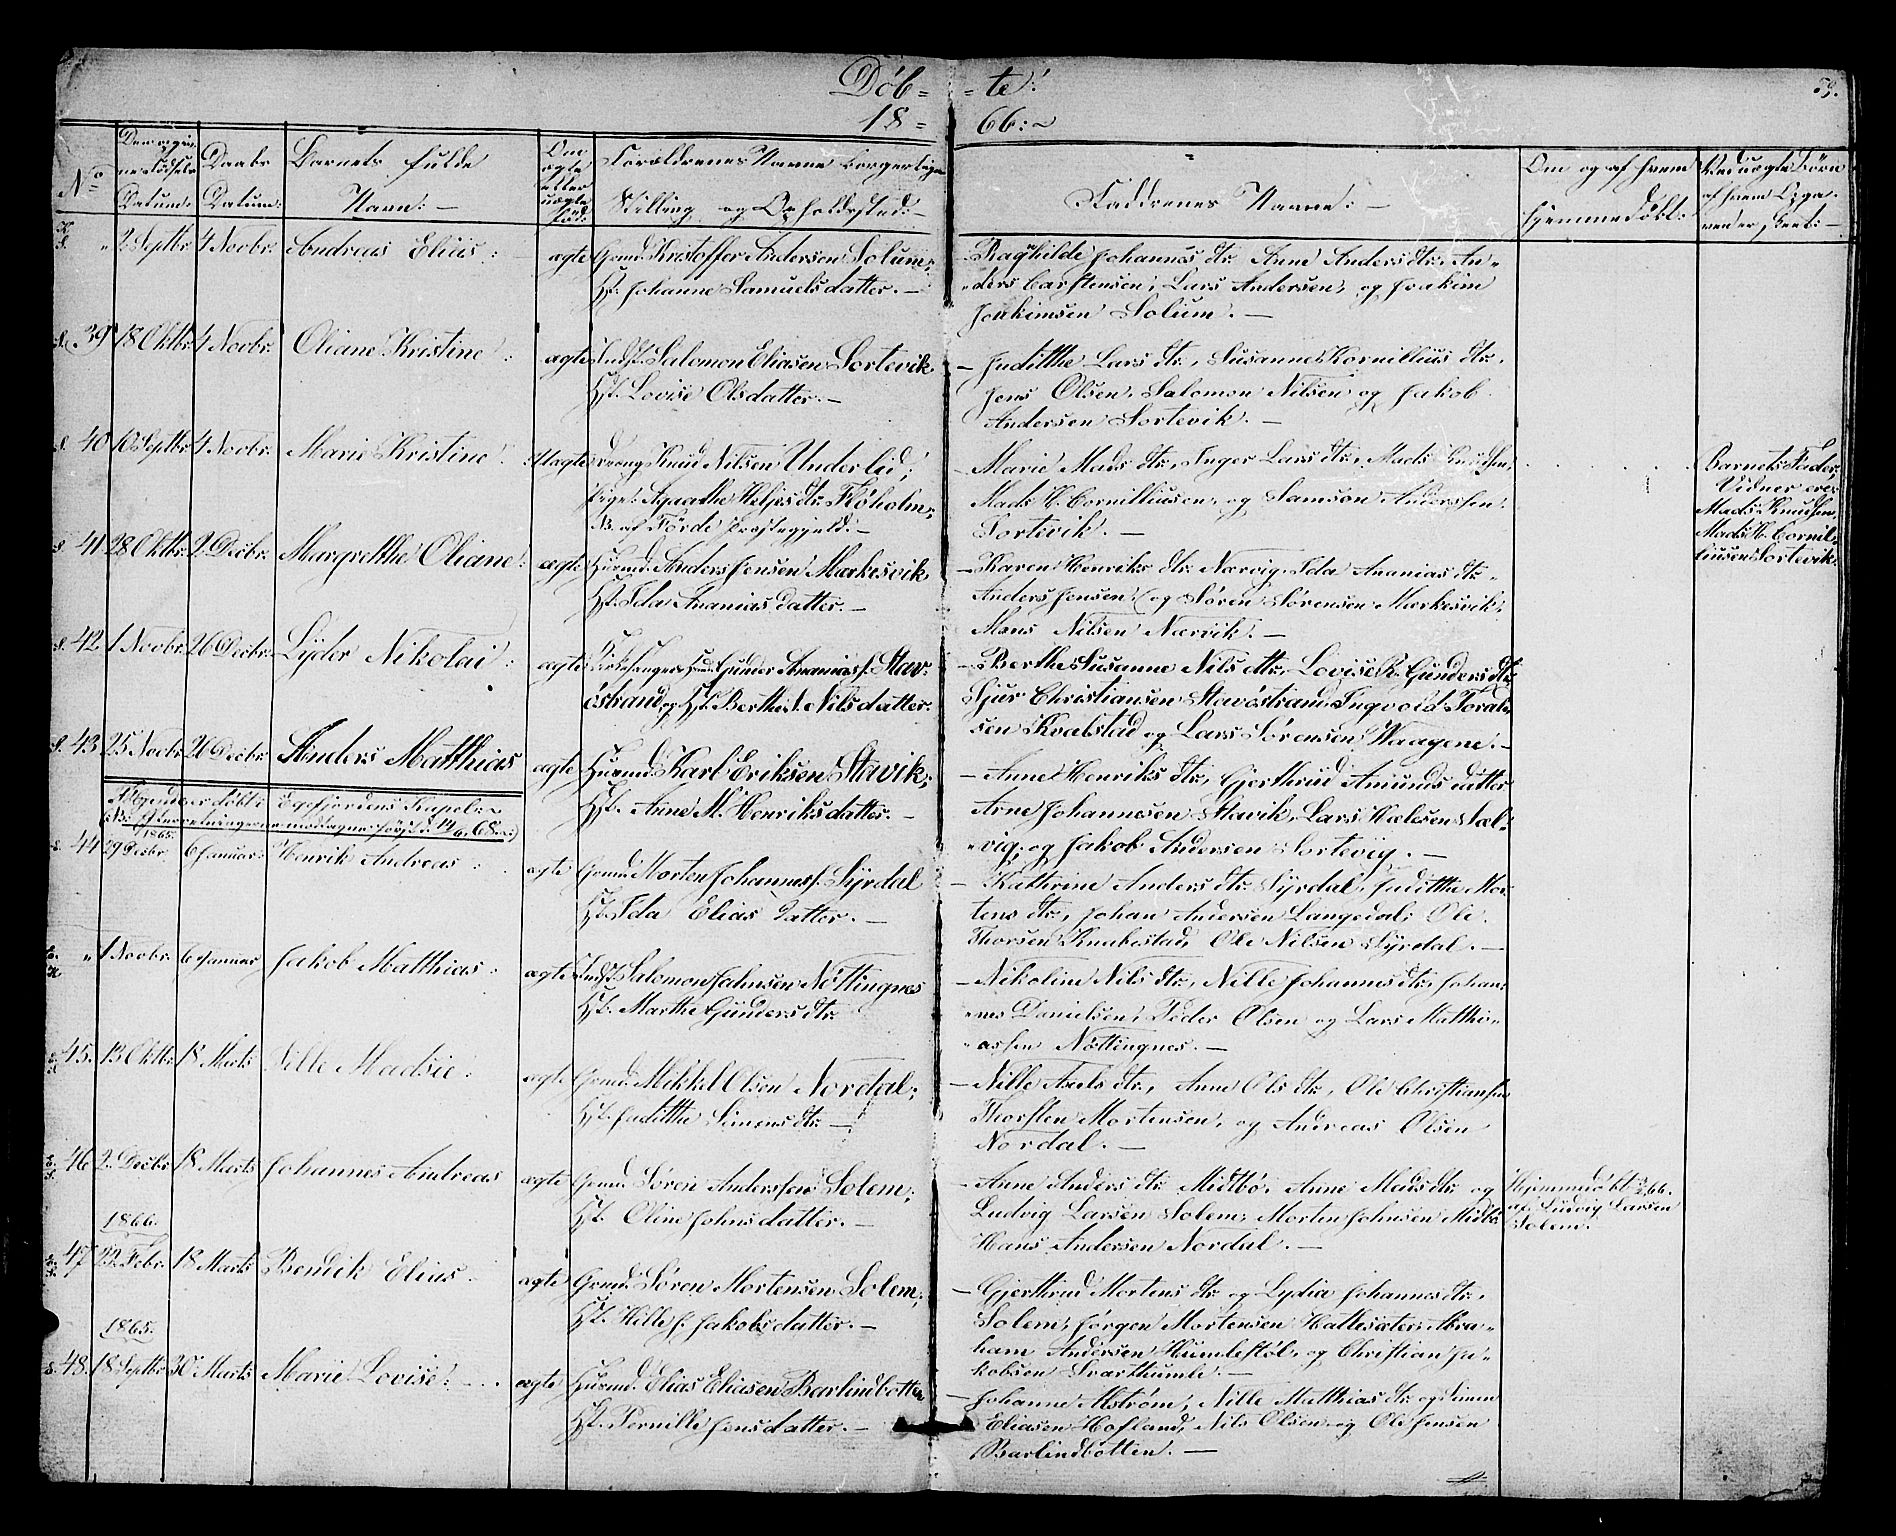 Döb= =te!
59.
18= 66:~
No
Den opgivne Fødsels Datum:
Daabs Datum:
Barnets fulde Navn:—
Om ægte eller uægte fød:
Forældrenes Navne borgerlige Stilling og Opholdssted:—
Faddrenes Navne:—
Om og af hvem hjemmedøbt:
Ved uægte Børn af hvem Opgaven er skeet:—
" 2 Septbr 4 Novbr. Andreas Elias: ægte Grmd. Kristoffer Andersen Solum;
Hst. Johanne Samuelsdatter.—
Raghilde Johannes dtr. Anne Anders dtr. An-
ders Carstensen, Lars Andersen, og Joakim
Joakimsen Solum.—
39 18 Oktbr. 4 Novbr. Oliane Kristine: ægte Indst. Salomon Eliasen Sortevik
Hst. Lovise Olsdatter.—
— Judithe Lars dtr., Susanne Kornillius dtr,
Jens Olsen, Salomon Nilsen og Jakob
Andersen Sortevik.—
40 10 Septbr 4 Novbr. Marie Kristine: Uægte Knud Nilsen Underlid,
Pige. Agaathe Heljes dtr. Flöholm
NB. af Förde Præstegjeld.—
— Marie Mads dtr, Inger Lars dtr, Mads Knudsen,
Mads H. Cornilliusen, og Samson Anderssen
Sortevik.—
Barnets Fader,
Vidner ere
Mads Knudsen,
Mads H. Cornil-
liusen Sortevik.
41 28 Oktbr. 2 Decbr. Margrethe Oliane: ægte Huusmd. Anders Jensen Mærkesvik
Hst. Ida Ananias datter.—
— Karen Henriks dtr. Nærvig, Ida Ananias dtr.
Anders Jensen, og Søren Sørensen Mærkesvik,
Mons Nilsen Nærvik.—
42 1 Novbr. 26 Decbr. Lyder Nikolai: ægte Kirkesanger Gunder Ananiass. Stav-
östrand og Hst. Berthe Nilsdatter.
— Berthe Susanne Nils dtr., Lovise K. Gunders dtr
Sjur Christiansen Stavöstrand, Ingvold Toral-
sen Kvalstad og Lars Sörensen Waagene.—
43 25 Novbr 26 Decbr. Anders Matthias ægte Huusmd. Karl Eriksen Stavik;
Hst. Anne M. Henriksdatter.—
— Anne Henriks dtr, Gjerthrud Amunds datter
Arne Johannesen Stavik, Lars Sæl-
vig, og Jakob Andersen Sortevig.—
Følgende er døbt i Eegefjordens Kapel:
1865.
44 29 Decbr. 6 Januar: Henrik Andreas: ægte Grmd. Morten Johanness. Syrdal
Hst. Ida Elias datter.—
— Kathrine Anders dtr. Syrdal, Judithe Mor-
tens dtr, Johan Andersen Langedal, Ole
Thorsen Knabestad, Ole Nilsen Syrdal.—
" 1 Novbr. 6 Januar Jakob Matthias: ægte Indst. Salomon Johnsen Nöttingnes
Hst. Marthe Gunders dtr.
— Nikoline Nils dtr, Nille Johannes dtr, Johan-
nes Danielsen, Peder Olsen og Lars Matthi-
assen Nöttingnes.—
45. 13 Oktbr 18 Marts Nille Madsie: ægte Grmd. Mikkel Olsen Nordal;
Hst. Judithe Simens dtr.—
— Nille Nils dtr., Anne Ols dtr, Ole Christiansen
Thorsten Mortensen, og Andreas Olsen
Nordal.—
46 2 Decbr 18 Marts Johannes Andreas ægte Grmd. Søren Anderssen Solem;
Hst. Oline Johnsdatter.—
— Anne Anders dtr. Midtbö, Anne Mads dtr. og
Ludvig Larsen Solem, Morten Johnsen Midtb.
Hans Andersen Nordal.—
Hjemmedøbt 66.
af Ludvig Larsen
Solem.
1866.
47 23 Febr. 18 Marts Bendik Elias: ægte Grmd. Søren Mortensen Solem;
Hst. Nille J. Jakobsdatter.—
— Gjerthrud Mortens dtr og Lydia Johannes dtr,
Solem, Jørgen Mortensen Hattesæter, Abra-
ham Andersen Humlestöl, og Christian Ja-
kobsen Svarthumle.—
1865.
48. 18 Septbr 30 Marts Marie Lovise: ægte Huusmd. Elias Eliasen Barlindbotten
Hst. Pernille Jensdatter.—
— Johanne Alström, Nille Matthias dtr og Simen
Eliasen Hofland, Nils Olsen og Ole Jensen
Barlindbotten.—